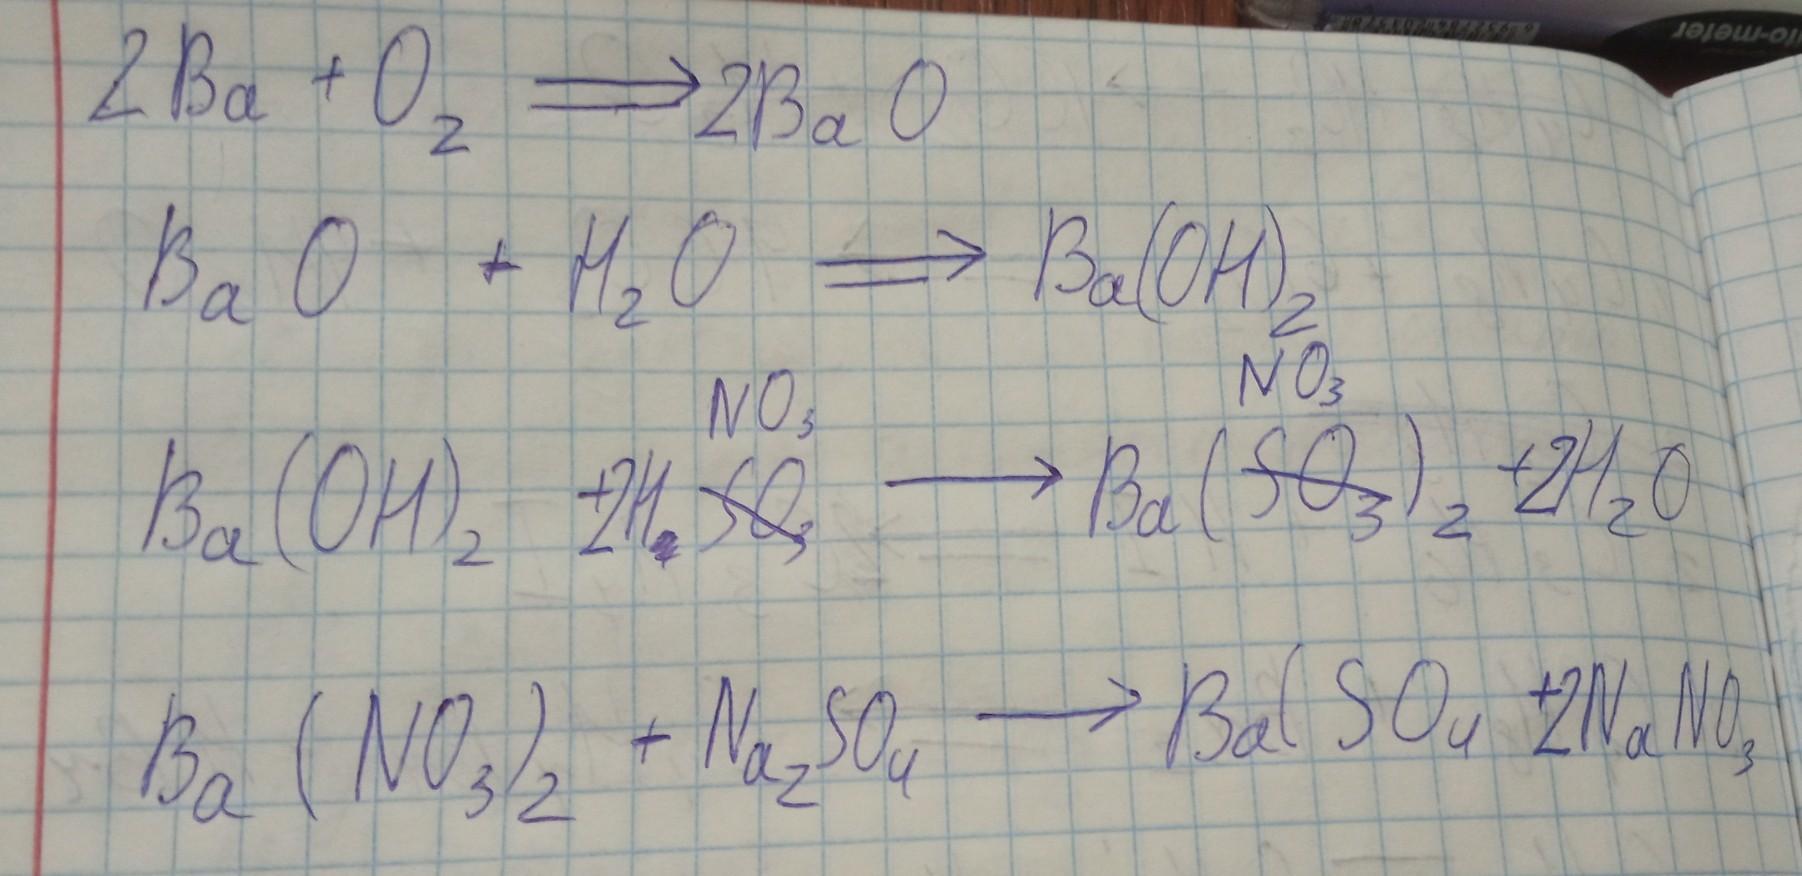 to-meter
2Ba + O₂ ⟹ 2BaO
BaO + H₂O ⟹ Ba(OH)₂
NO₃ NO₃
Ba(OH)₂ +2H SO₃ → Ba(SO₃)₂ +2H₂O
Ba(NO₃)₂ + Na₂SO₄ → Ba(SO₄ +2NaNO₃